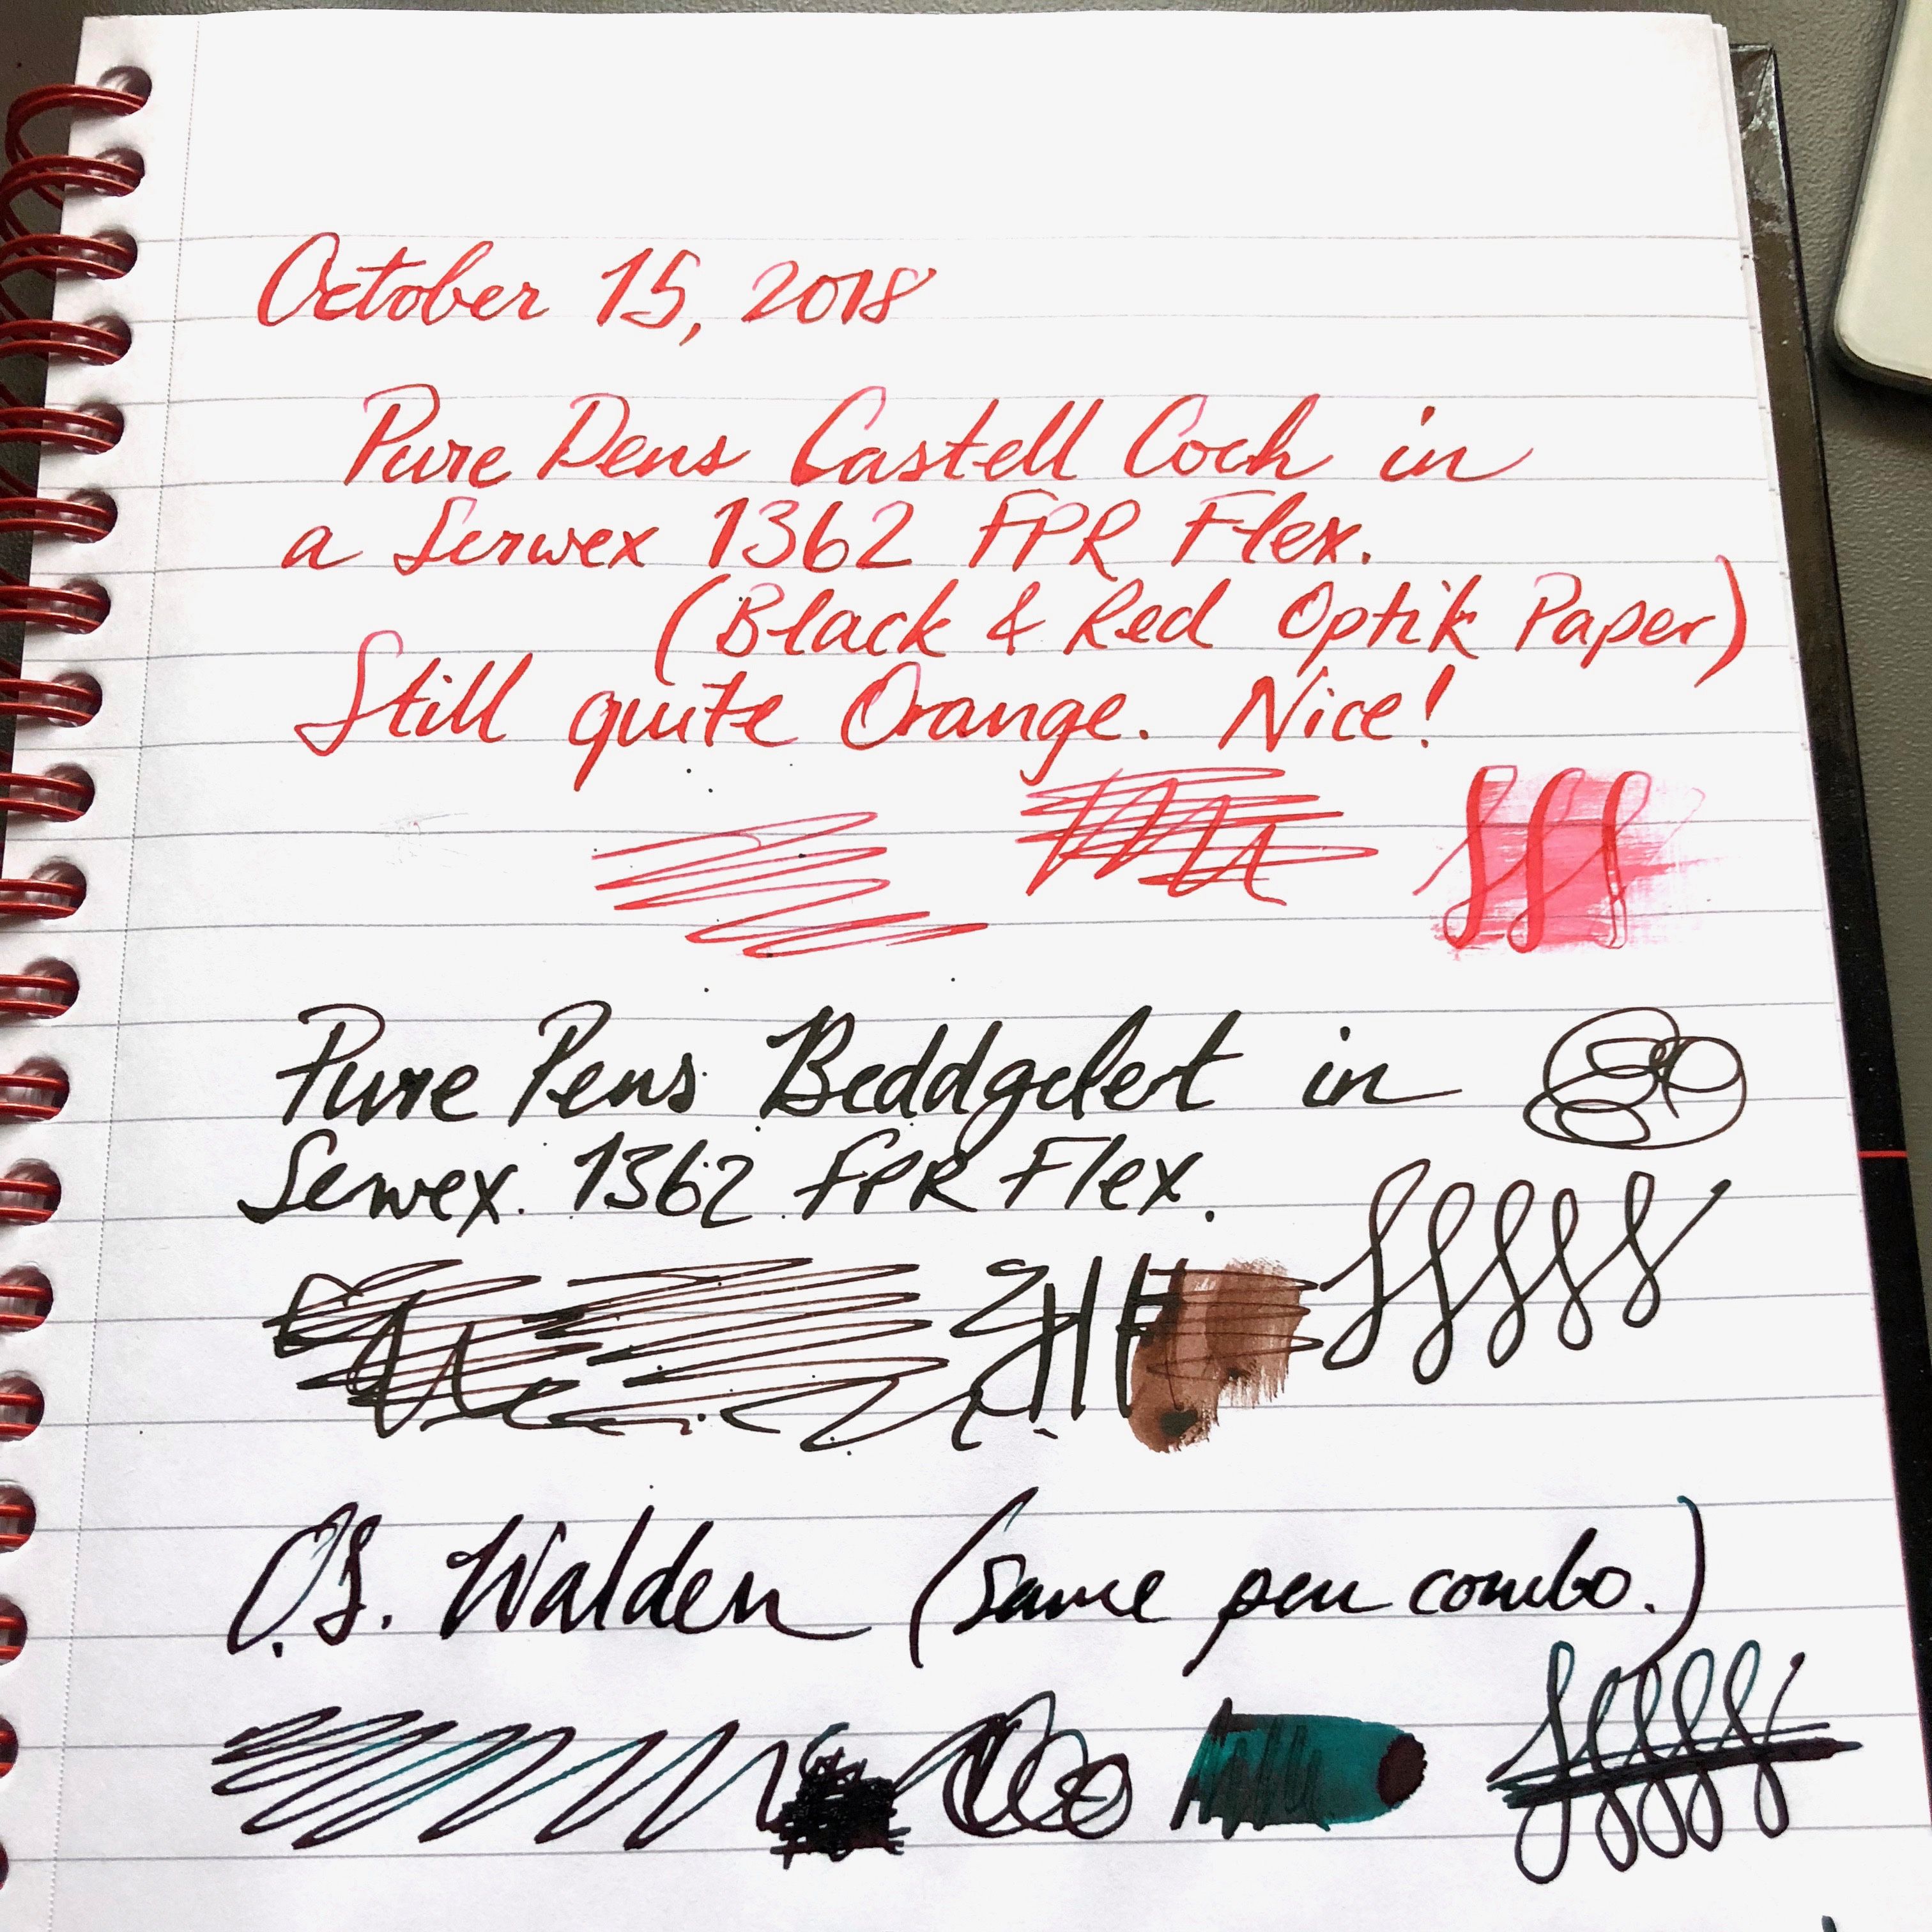 October 15, 2018
Pure Pens Castell Coch in
a Serwex 1362 FPR Flex.
(Black & Red Optik Paper)
Still quite Orange. Nice!
Pure Pens Beddgelert in
Serwex. 1362 FPR Flex.
O.S. Walden (same pen combo.)